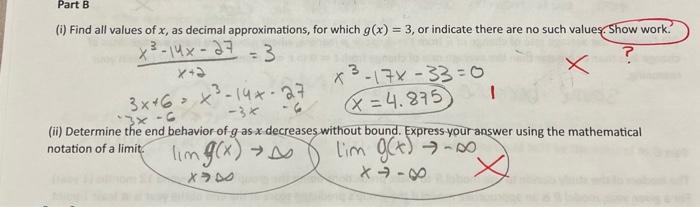 Part B
(i) Find all values of x, as decimal approximations, for which g(x) = 3, or indicate there are no such values. Show work.
x³-14x-27 = 3
x+2
?
x³-17x-33=0
3x+6 = x³-14x-27
x=4.875
1
-3x -6 -3x -6
(ii) Determine the end behavior of g as x decreases without bound. Express your answer using the mathematical
notation of a limit.
lim g(x) → ∞ lim g(x) → -∞
x→∞ x→-∞